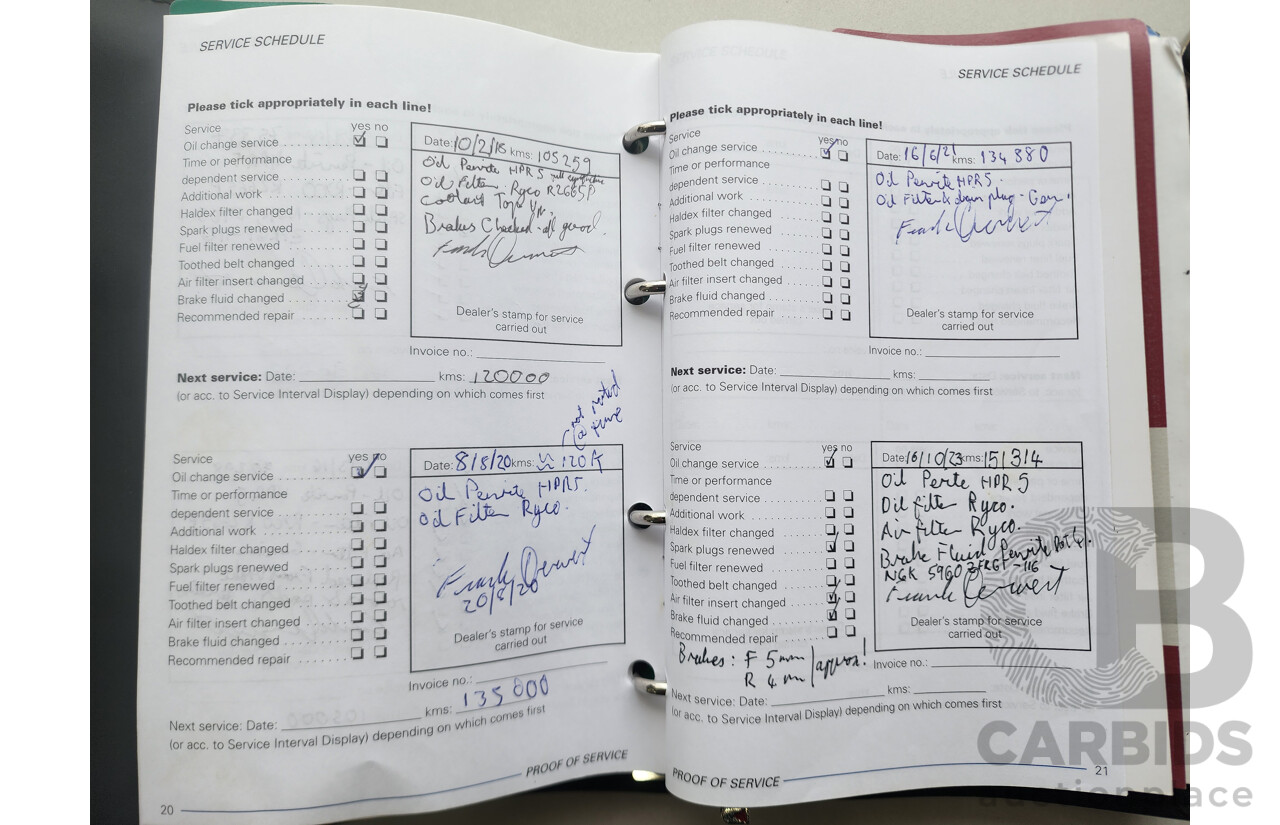 SERVICE SCHEDULE
Please tick appropriately in each line!
Service yes no
Oil change service
Time or performance
dependent service
Additional work
Haldex filter changed
Spark plugs renewed
Fuel filter renewed
Toothed belt changed
Air filter insert changed
Brake fluid changed
Recommended repair
Date: 10/2/18 kms: 105259
Oil Penrite HPR5 full synthetic
Oil Filter Ryco R2665P
Coolant Top Up.
Brakes Checked - all good.
Frank
Dealer's stamp for service
carried out
Invoice no.:
Next service: Date: kms: 120000
(or acc. to Service Interval Display) depending on which comes first
not noted
@ time
Service yes no
Oil change service
Time or performance
dependent service
Additional work
Haldex filter changed
Spark plugs renewed
Fuel filter renewed
Toothed belt changed
Air filter insert changed
Brake fluid changed
Recommended repair
Date: 8/8/20 kms: ≈ 120K
Oil Penrite HPR5.
Oil Filter Ryco.
Frank
20/8/20
Dealer's stamp for service
carried out
Invoice no.:
Next service: Date: kms: 135000
(or acc. to Service Interval Display) depending on which comes first
PROOF OF SERVICE
20
SERVICE SCHEDULE
Please tick appropriately in each line!
Service yes no
Oil change service
Time or performance
dependent service
Additional work
Haldex filter changed
Spark plugs renewed
Fuel filter renewed
Toothed belt changed
Air filter insert changed
Brake fluid changed
Recommended repair
Date: 16/6/21 kms: 134880
Oil Penrite HPR5.
Oil Filter & drain plug - Gen.
Frank
Dealer's stamp for service
carried out
Invoice no.:
Next service: Date: kms:
(or acc. to Service Interval Display) depending on which comes first
Service yes no
Oil change service
Time or performance
dependent service
Additional work
Haldex filter changed
Spark plugs renewed
Fuel filter renewed
Toothed belt changed
Air filter insert changed
Brake fluid changed
Recommended repair
Date: 16/10/23 kms: 151314
Oil Penrite HPR5
Oil Filter Ryco.
Air Filter Ryco.
Brake Fluid Penrite Dot 4.
NGK 5960
Frank
Dealer's stamp for service
carried out
Brakes: F 5mm
R 4mm
approx!
Invoice no.:
Next service: Date: kms:
(or acc. to Service Interval Display) depending on which comes first
PROOF OF SERVICE
21
CARBIDS
auctionplace